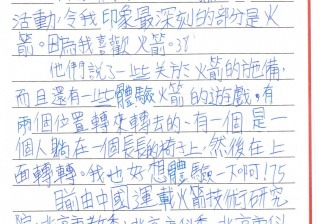 活動,令我印象最深刻的部分是火
箭。因為我喜歡火箭。38
他們說了一些关於火箭的施備,
而且還有一些體驗火箭的遊戲。有
兩個位置轉來轉去的、有一個是一
個人躺在一個長長的椅子上,然後在上
面轉轉。我也好想體驗一下啊!75
□由中國運載火箭技術研究